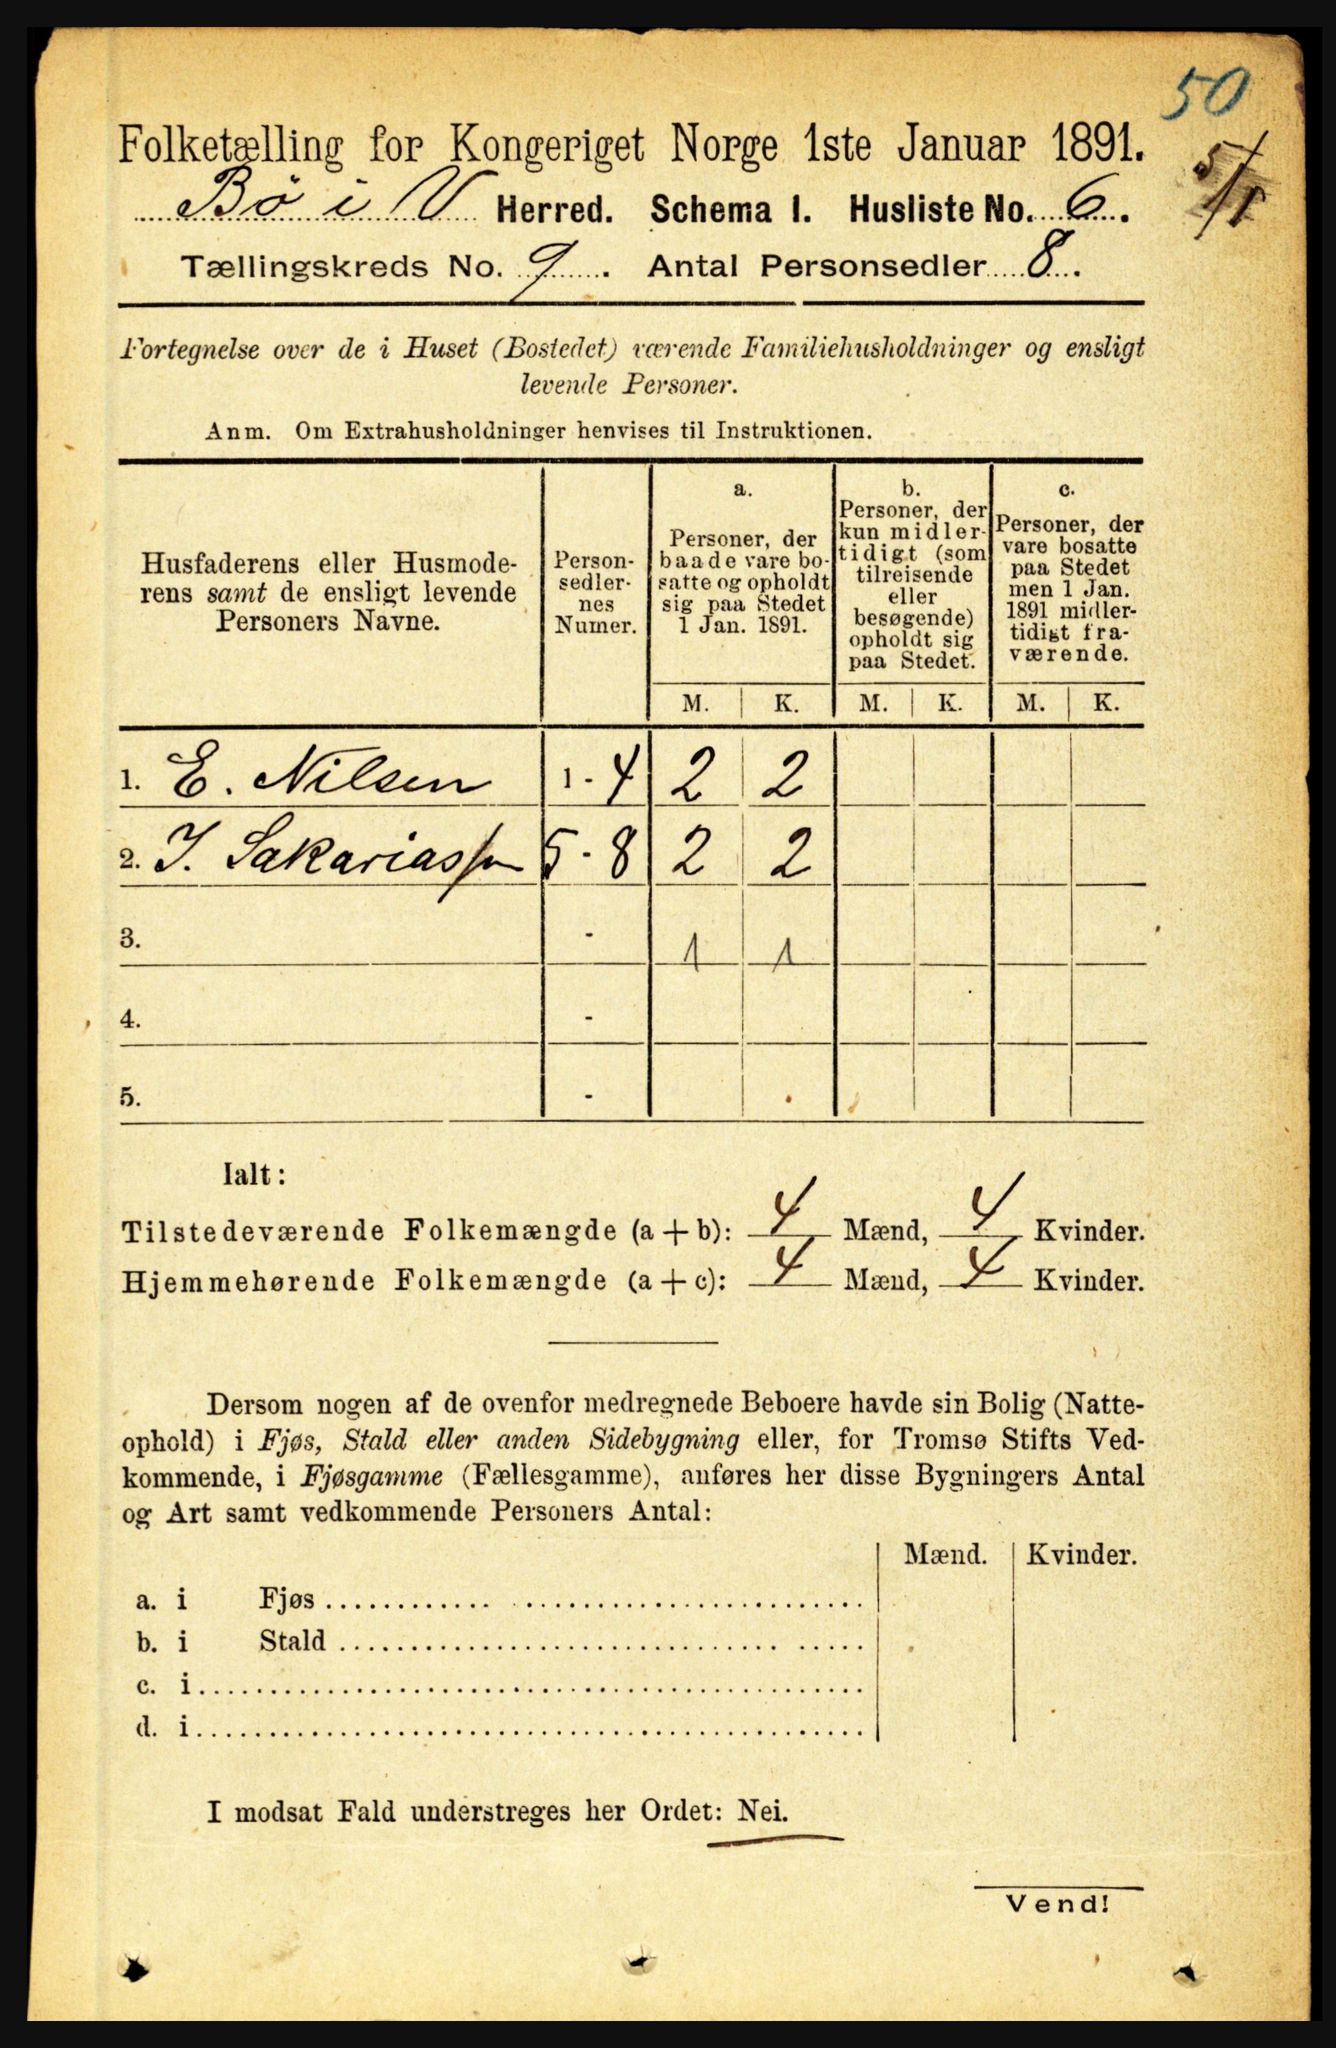 50
5/1
Folketælling for Kongeriget Norge 1ste Januar 1891.
Bö i V Herred. Schema I. Husliste No. 6.
Tællingskreds No. 9. Antal Personsedler 8.
Fortegnelse over de i Huset (Bostedet) værende Familiehusholdninger og ensligt
levende Personer.
Anm. Om Extrahusholdninger henvises til Instruktionen.
Husfaderens eller Husmode-
rens samt de ensligt levende
Personers Navne.
Person-
sedler-
nes
Numer.
a.
Personer, der
baade vare bo-
satte og opholdt
sig paa Stedet
1 Jan. 1891.
b.
Personer, der
kun midler-
tidigt (som
tilreisende
eller
besøgende)
opholdt sig
paa Stedet.
c.
Personer, der
vare bosatte
paa Stedet
men 1 Jan.
1891 midler-
tidigt fra-
værende.
M. K. M. K. M. K.
1. E. Nilsen 1 - 4 2 2
2. J. Sakariassen 5 - 8 2 2
3. - 1 1
4. -
5. -
Ialt:
Tilstedeværende Folkemængde (a + b): 4 Mænd, 4 Kvinder.
Hjemmehørende Folkemængde (a + c): 4 Mænd, 4 Kvinder.
Dersom nogen af de ovenfor medregnede Beboere havde sin Bolig (Natte-
ophold) i Fjøs, Stald eller anden Sidebygning eller, for Tromsø Stifts Ved-
kommende, i Fjøsgamme (Fællesgamme), anføres her disse Bygningers Antal
og Art samt vedkommende Personers Antal:
Mænd. Kvinder.
a. i Fjøs
b. i Stald
c. i
d. i
I modsat Fald understreges her Ordet: Nei.
Vend!